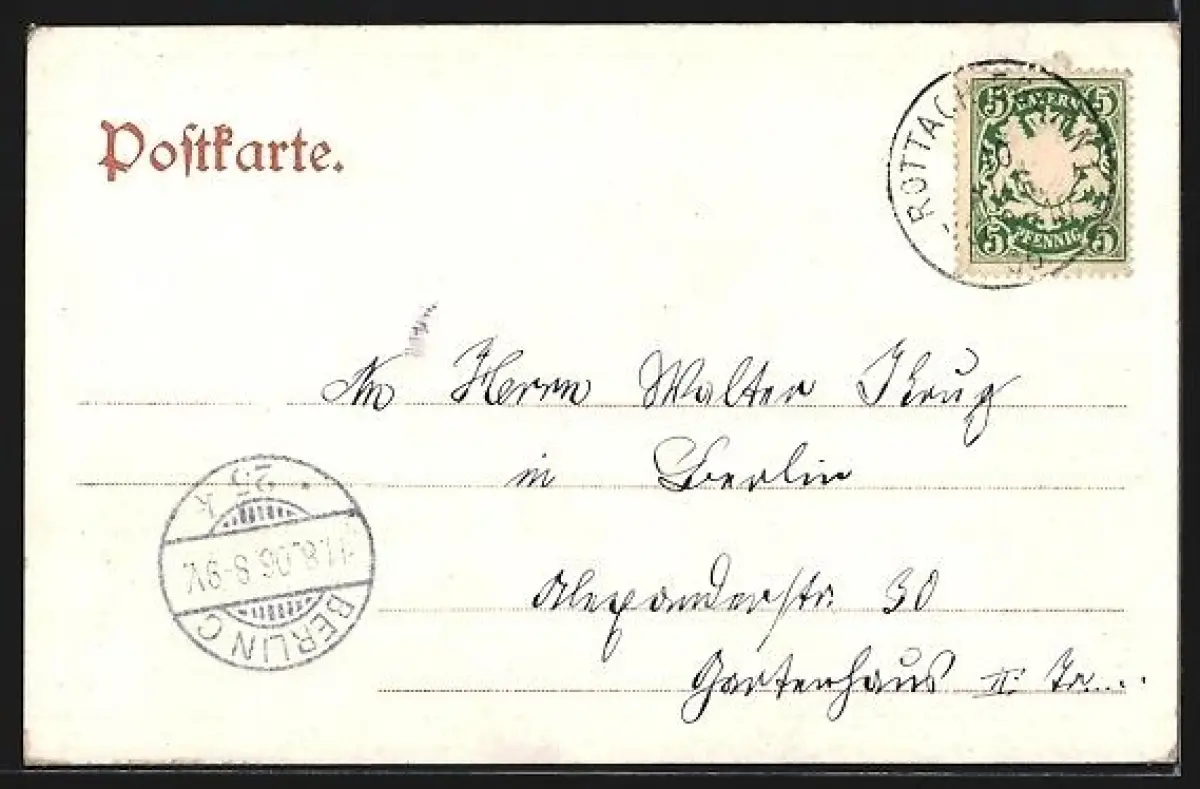 Postkarte.
ROTTACH
BAYERN
5 5
PFENNIG
5 5
An Herrn Walter Krug
in Berlin
Alexanderstr. 30
Gartenhaus II Tr....
BERLIN C
11.8.06.8-9V.
* 25 K